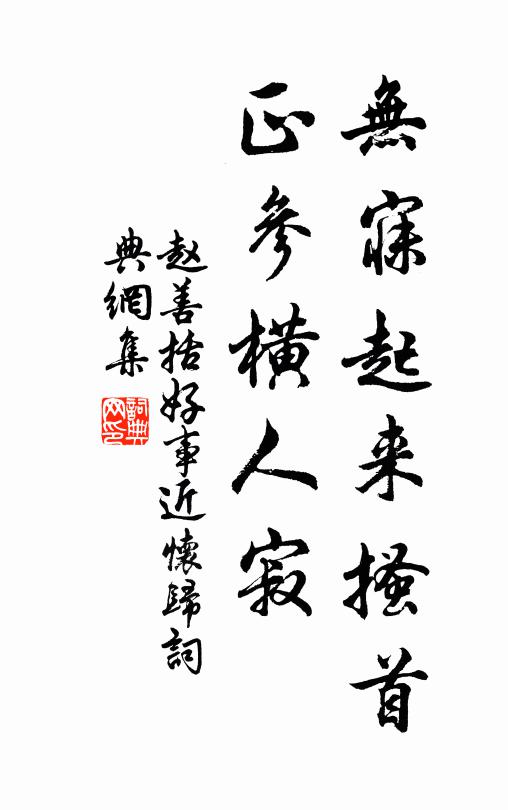 無寐起来搔首
正參橫人寂
赵善括好事近懷歸詞
典網集
詞典
网印